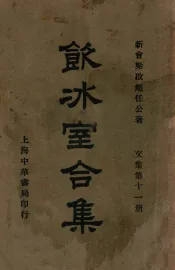 新會梁啟超任公著
飲冰室合集
文集第十一册
上海中華書局印行